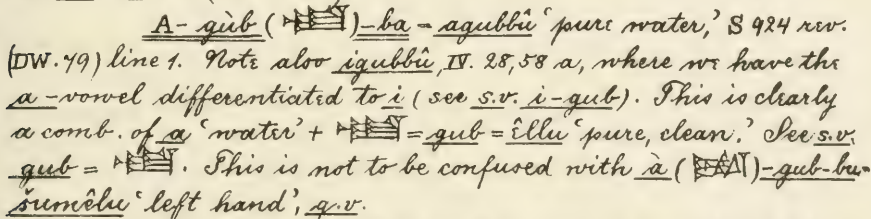 A-gùb ( )-ba = agubbû 'pure water,' S 924 rev.
(DW. 79) line 1. Note also igubbû, IV. 28,58 a, where we have the
a-vowel differentiated to i (see s.v. i-gub). This is clearly
a comb. of a 'water' + = gub = êllu 'pure, clean.' See s.v.
gub = . This is not to be confused with à ( )-gub-bu =
šumêlu 'left hand', q.v.